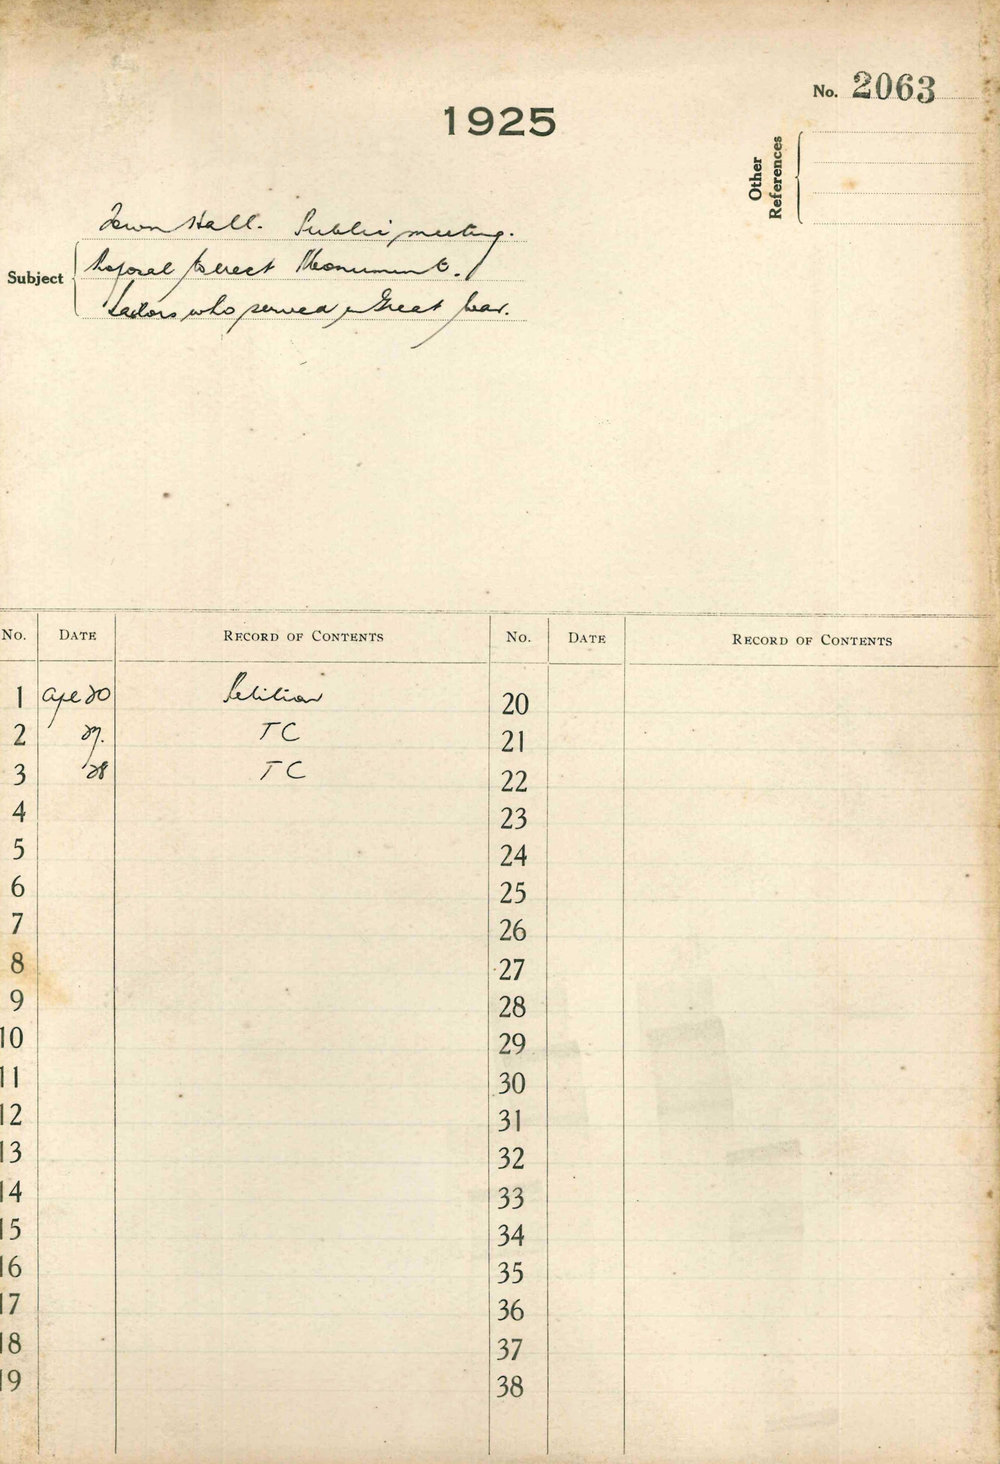 No. 2063
1925
Other
References
Town Hall. Public meeting.
Subject
Proposal to erect Monument.
Sailors who served in Great War.
No. DATE RECORD OF CONTENTS No. DATE RECORD OF CONTENTS
1 Apl 20 Petition 20
2 27. TC 21
3 28 TC 22
4 23
5 24
6 25
7 26
8 27
9 28
10 29
11 30
12 31
13 32
14 33
15 34
16 35
17 36
18 37
19 38